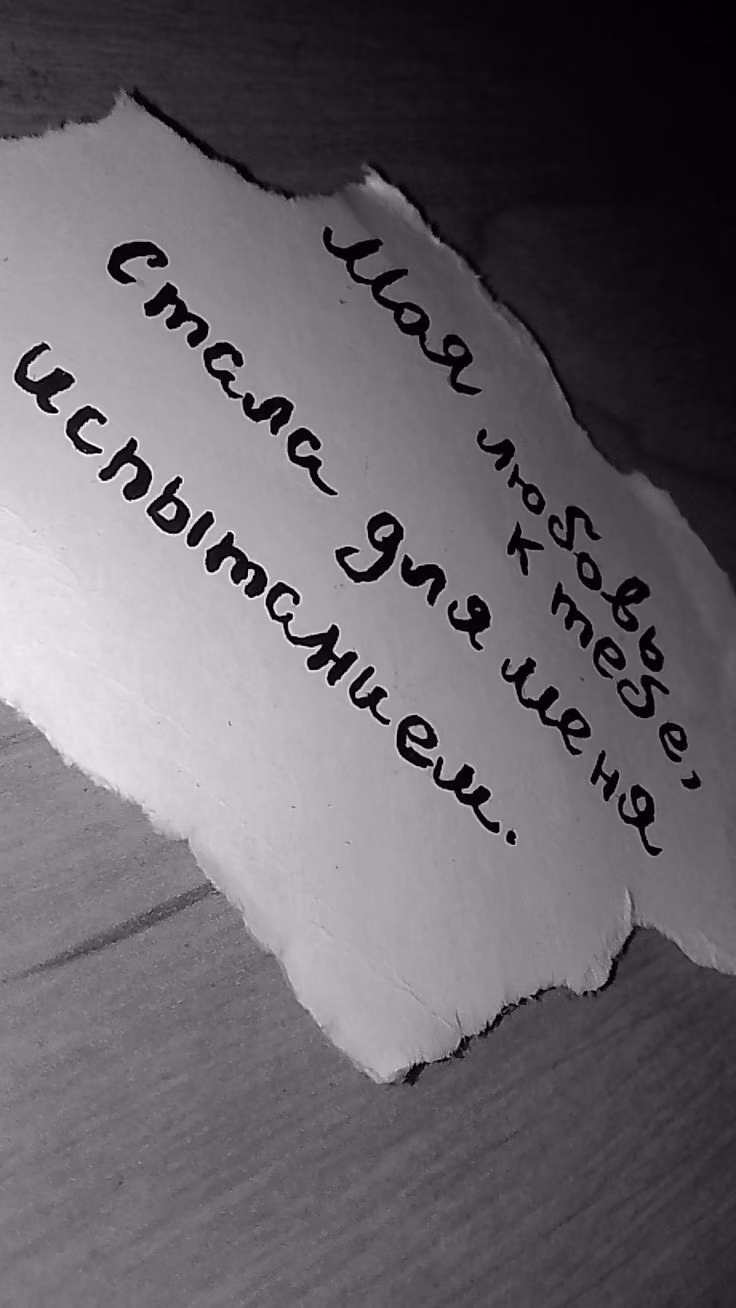 Моя любовь
к тебе,
стала для меня
испытанием.